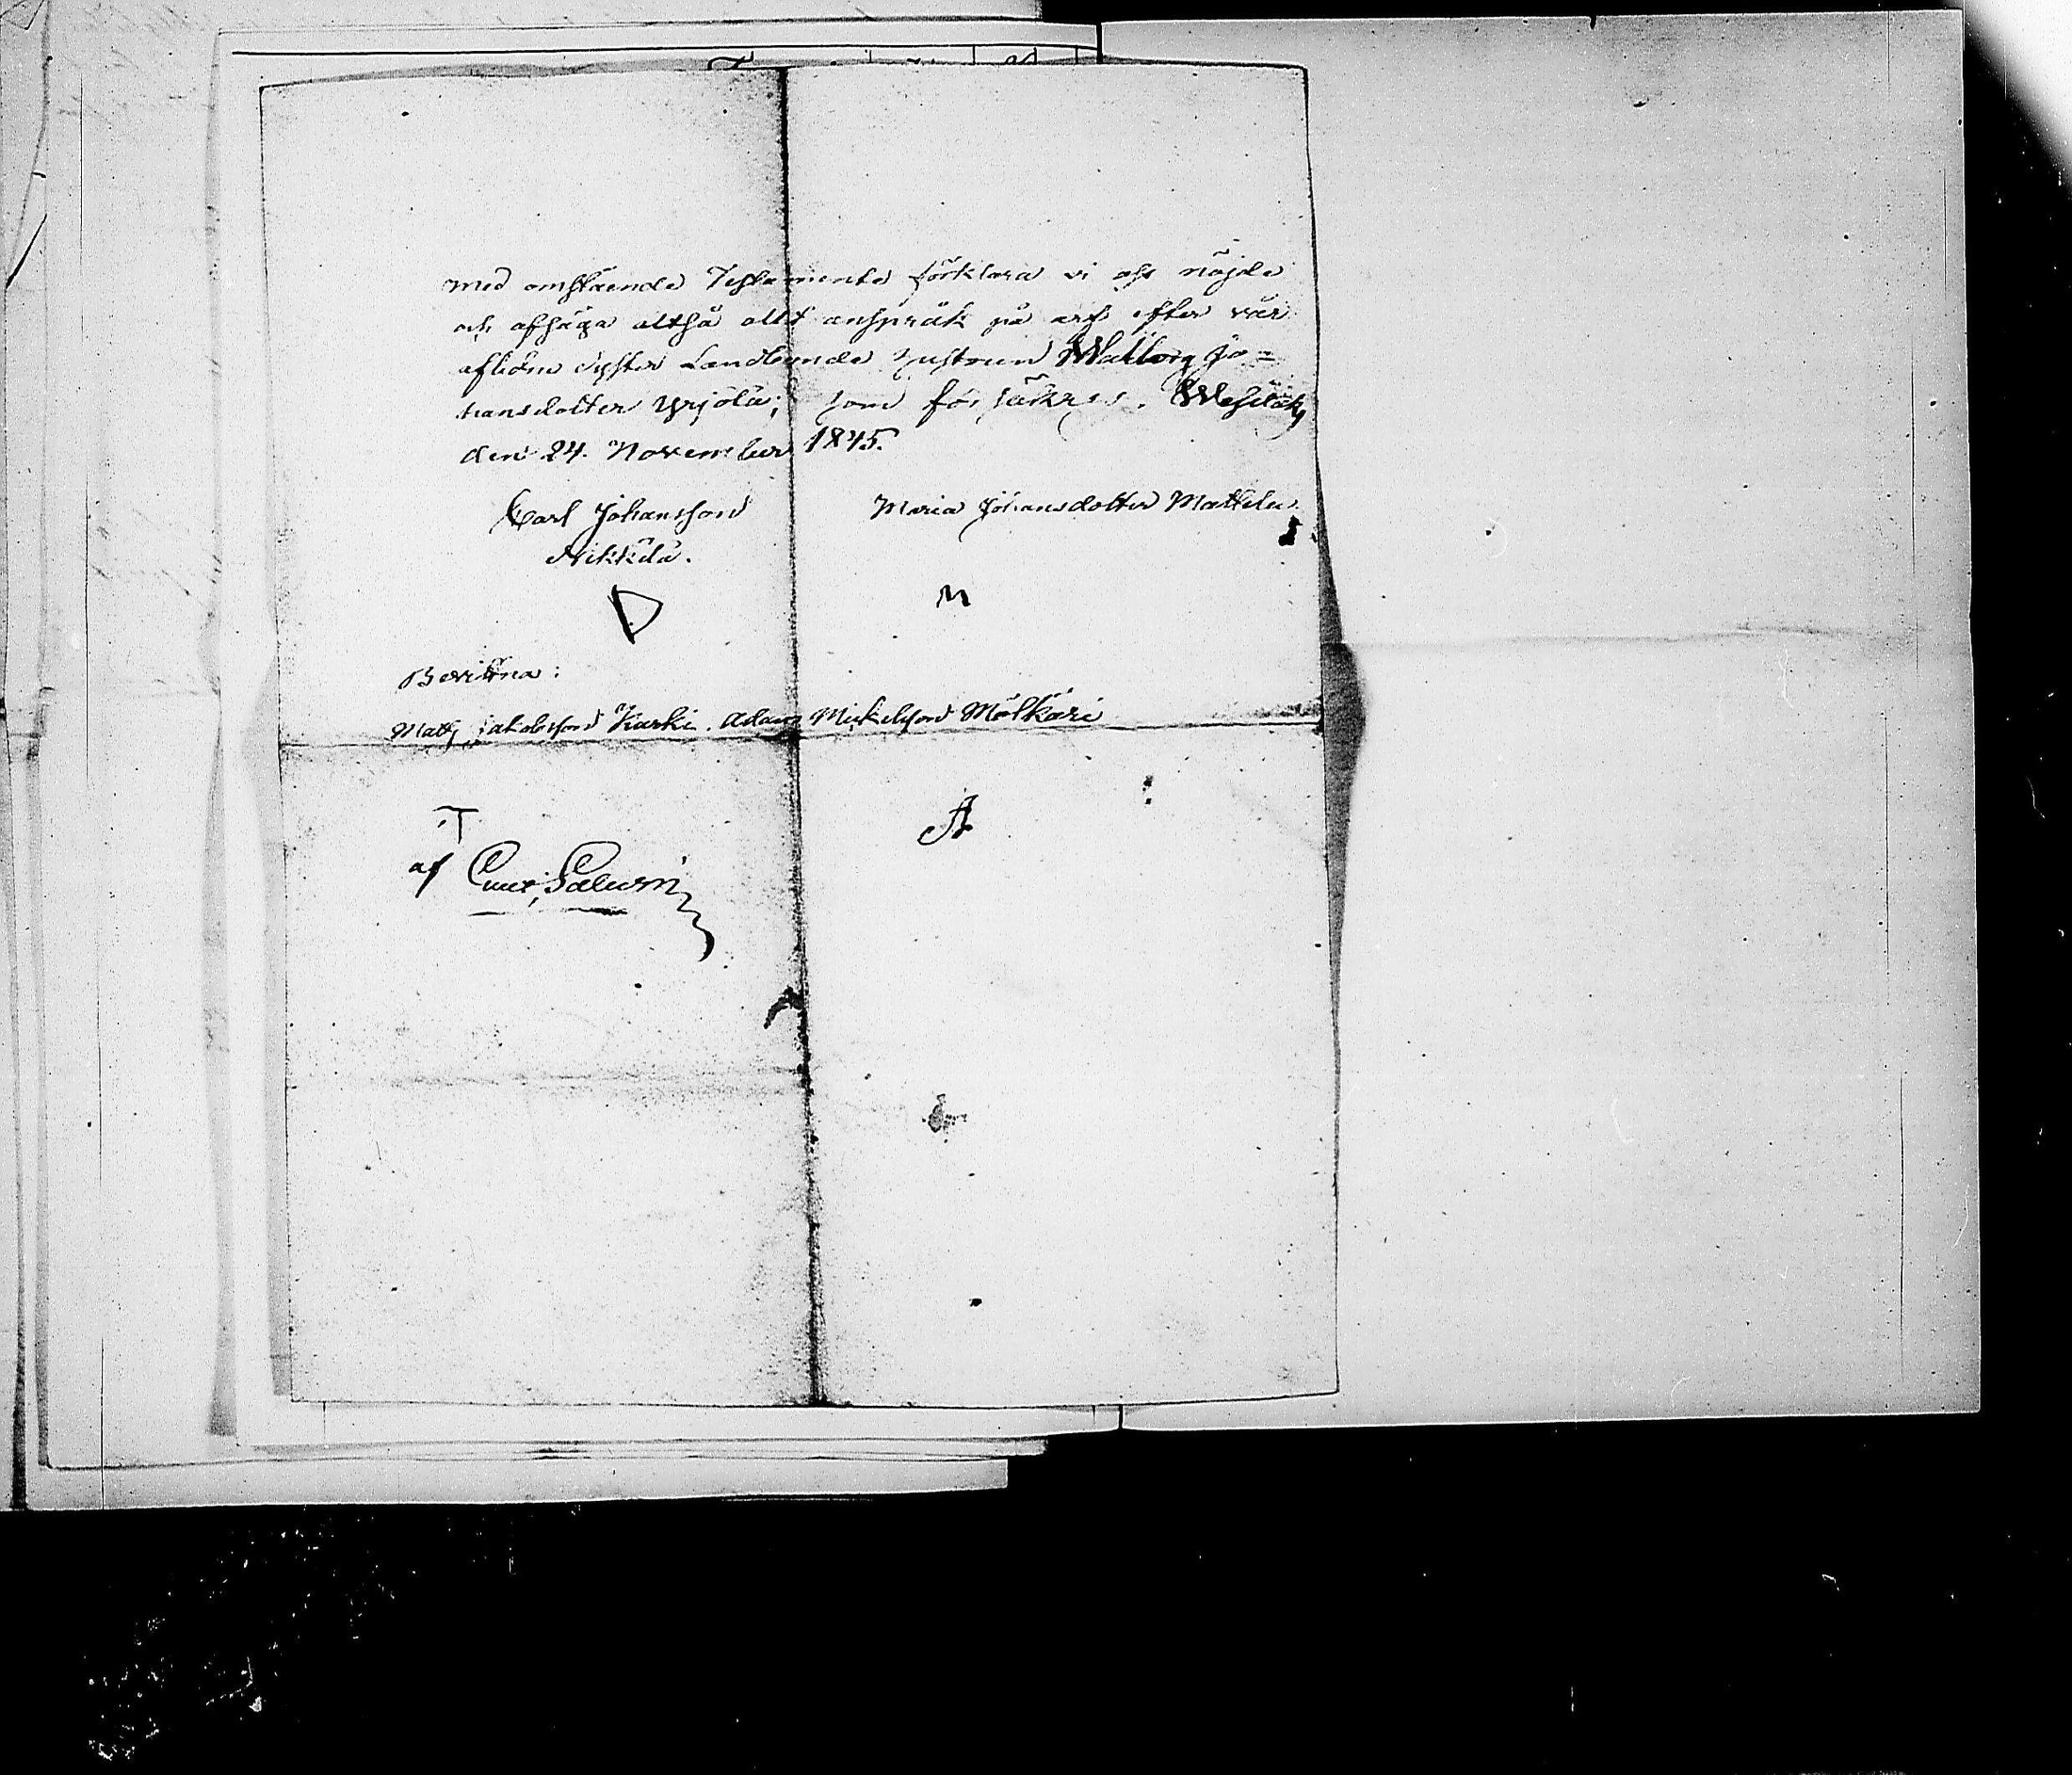 med omstående Testamente förklara vi oss nöjde
och afsäga altså allt anspråk på arf efter vår
aflidne syster Landbonde hustrun Walborg Jo=
hansdotter Yrjölä; som försäkras. Wesilaks
den 24. November 1845.
Carl Johansson Maria Johansdotter Mattila
Nikkilä.
D M
Bevittna:
Matts Jakobsson Karki. Adam Mickelsson Mölkäri
T A
af